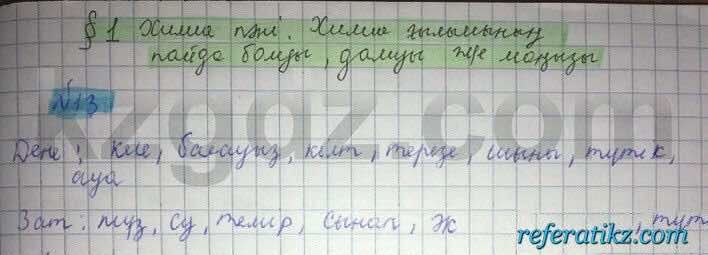 § 1 Химия пәні. Химия ғылымының
пайда болуы, дамуы және маңызы
№13
Дене: кесе, балауыз, кілт, терезе, шыны, түтік,
ауа
Зат: тұз, су, темір, сынап,
kzgdz.com
referatikz.com